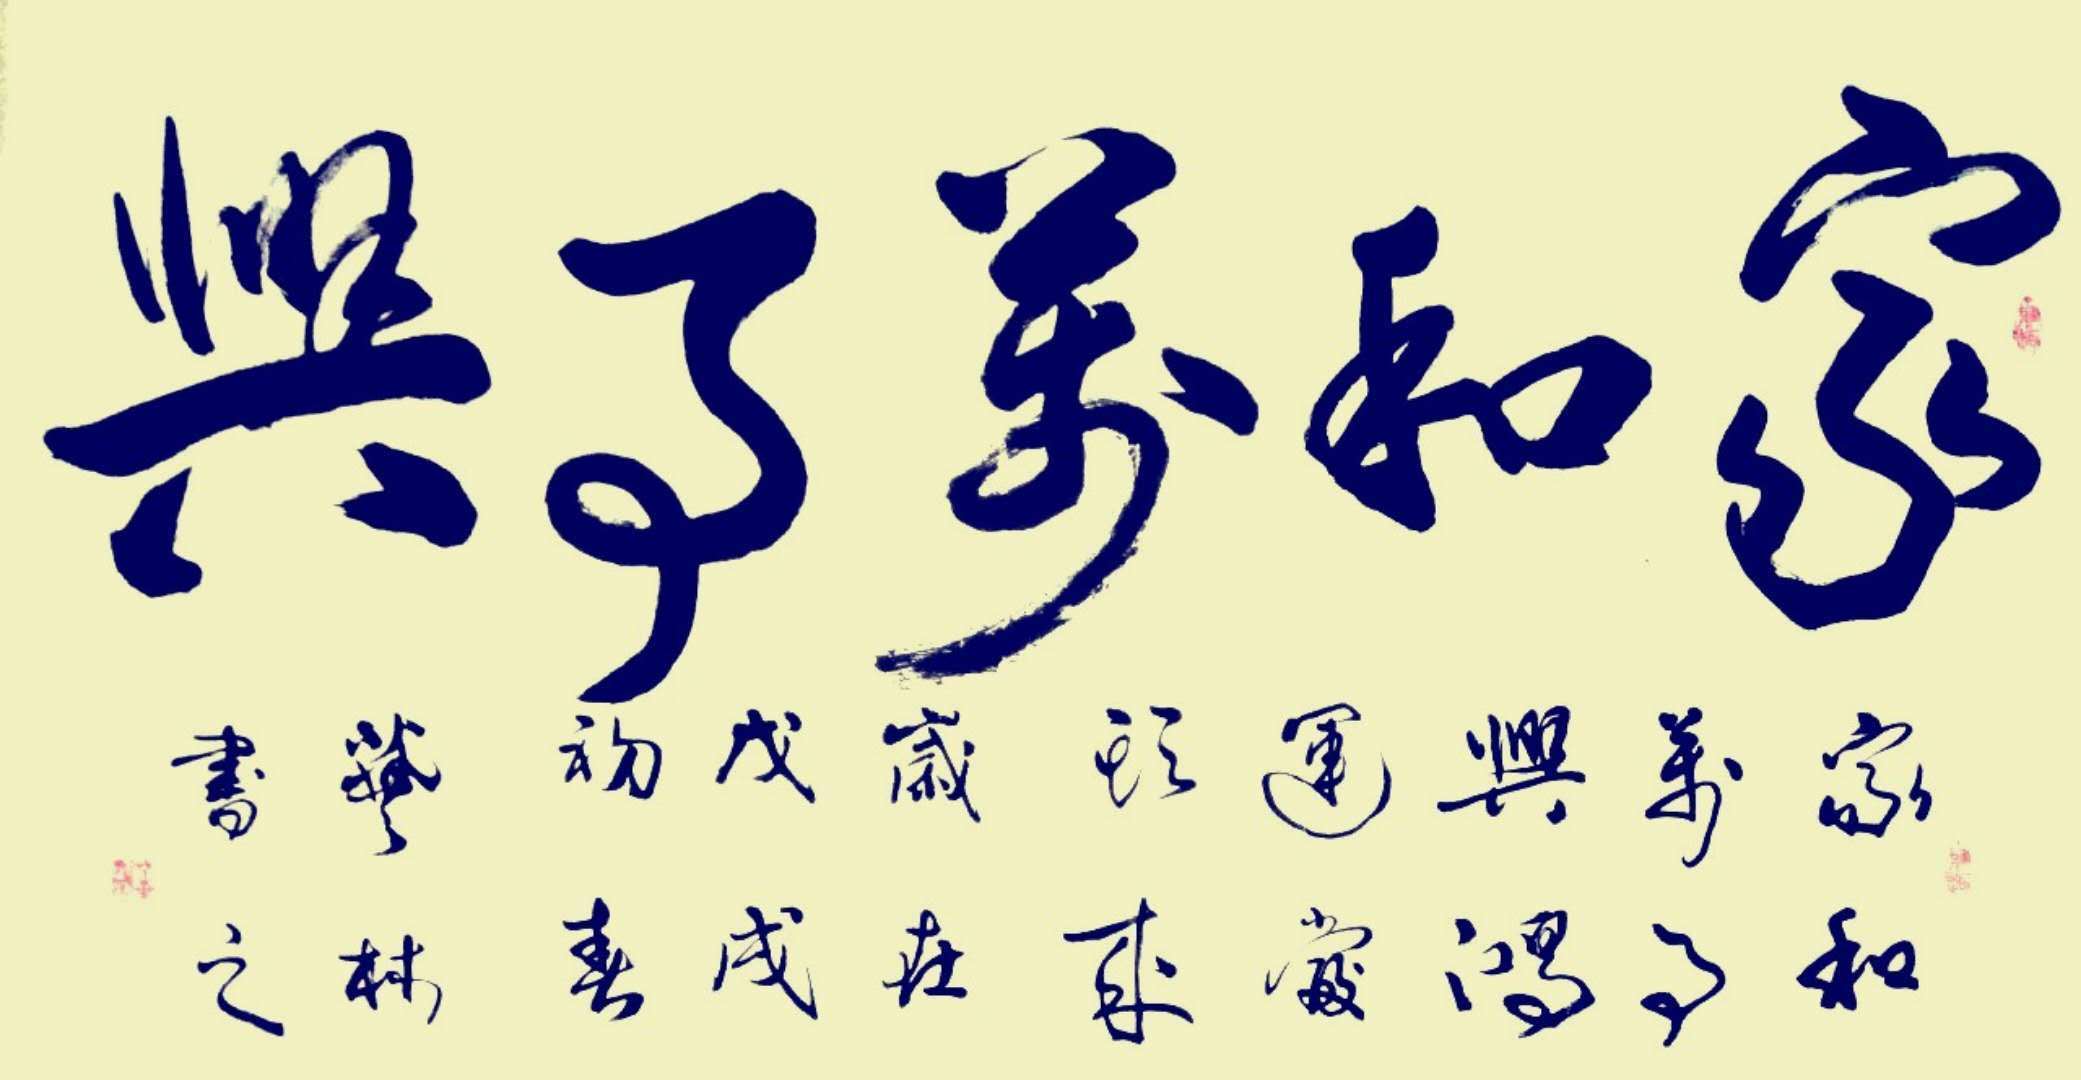 家和萬事興
家和
萬事
興鴻
運當
頭來
歲在
戊戌
初春
藝林
書之